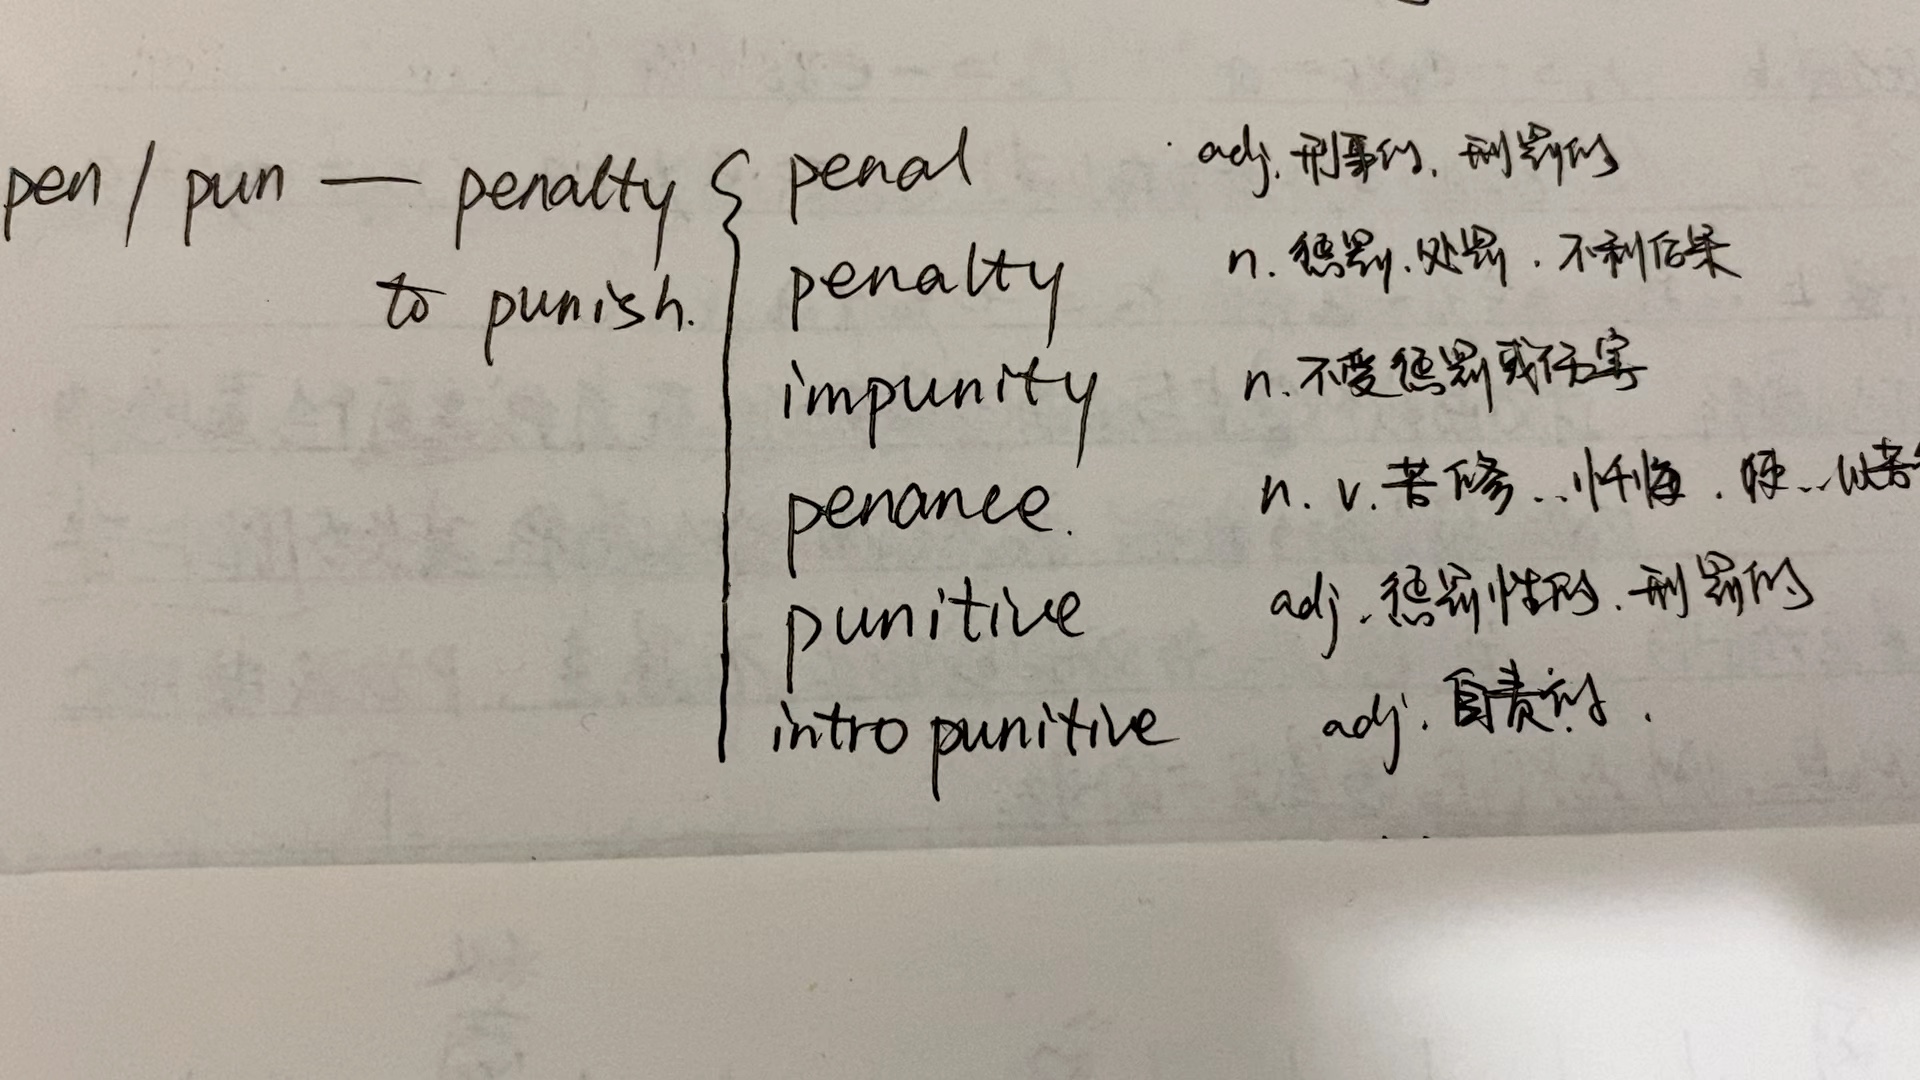 pen / pun — penalty { penal adj. 刑事的、刑罚的
to punish. penalty n. 惩罚、处罚、不利后果
impunity n. 不受惩罚或伤害
penance. n. v. 苦修...忏悔、使...以苦
punitive adj. 惩罚性的、刑罚的
intro punitive adj. 自责的.